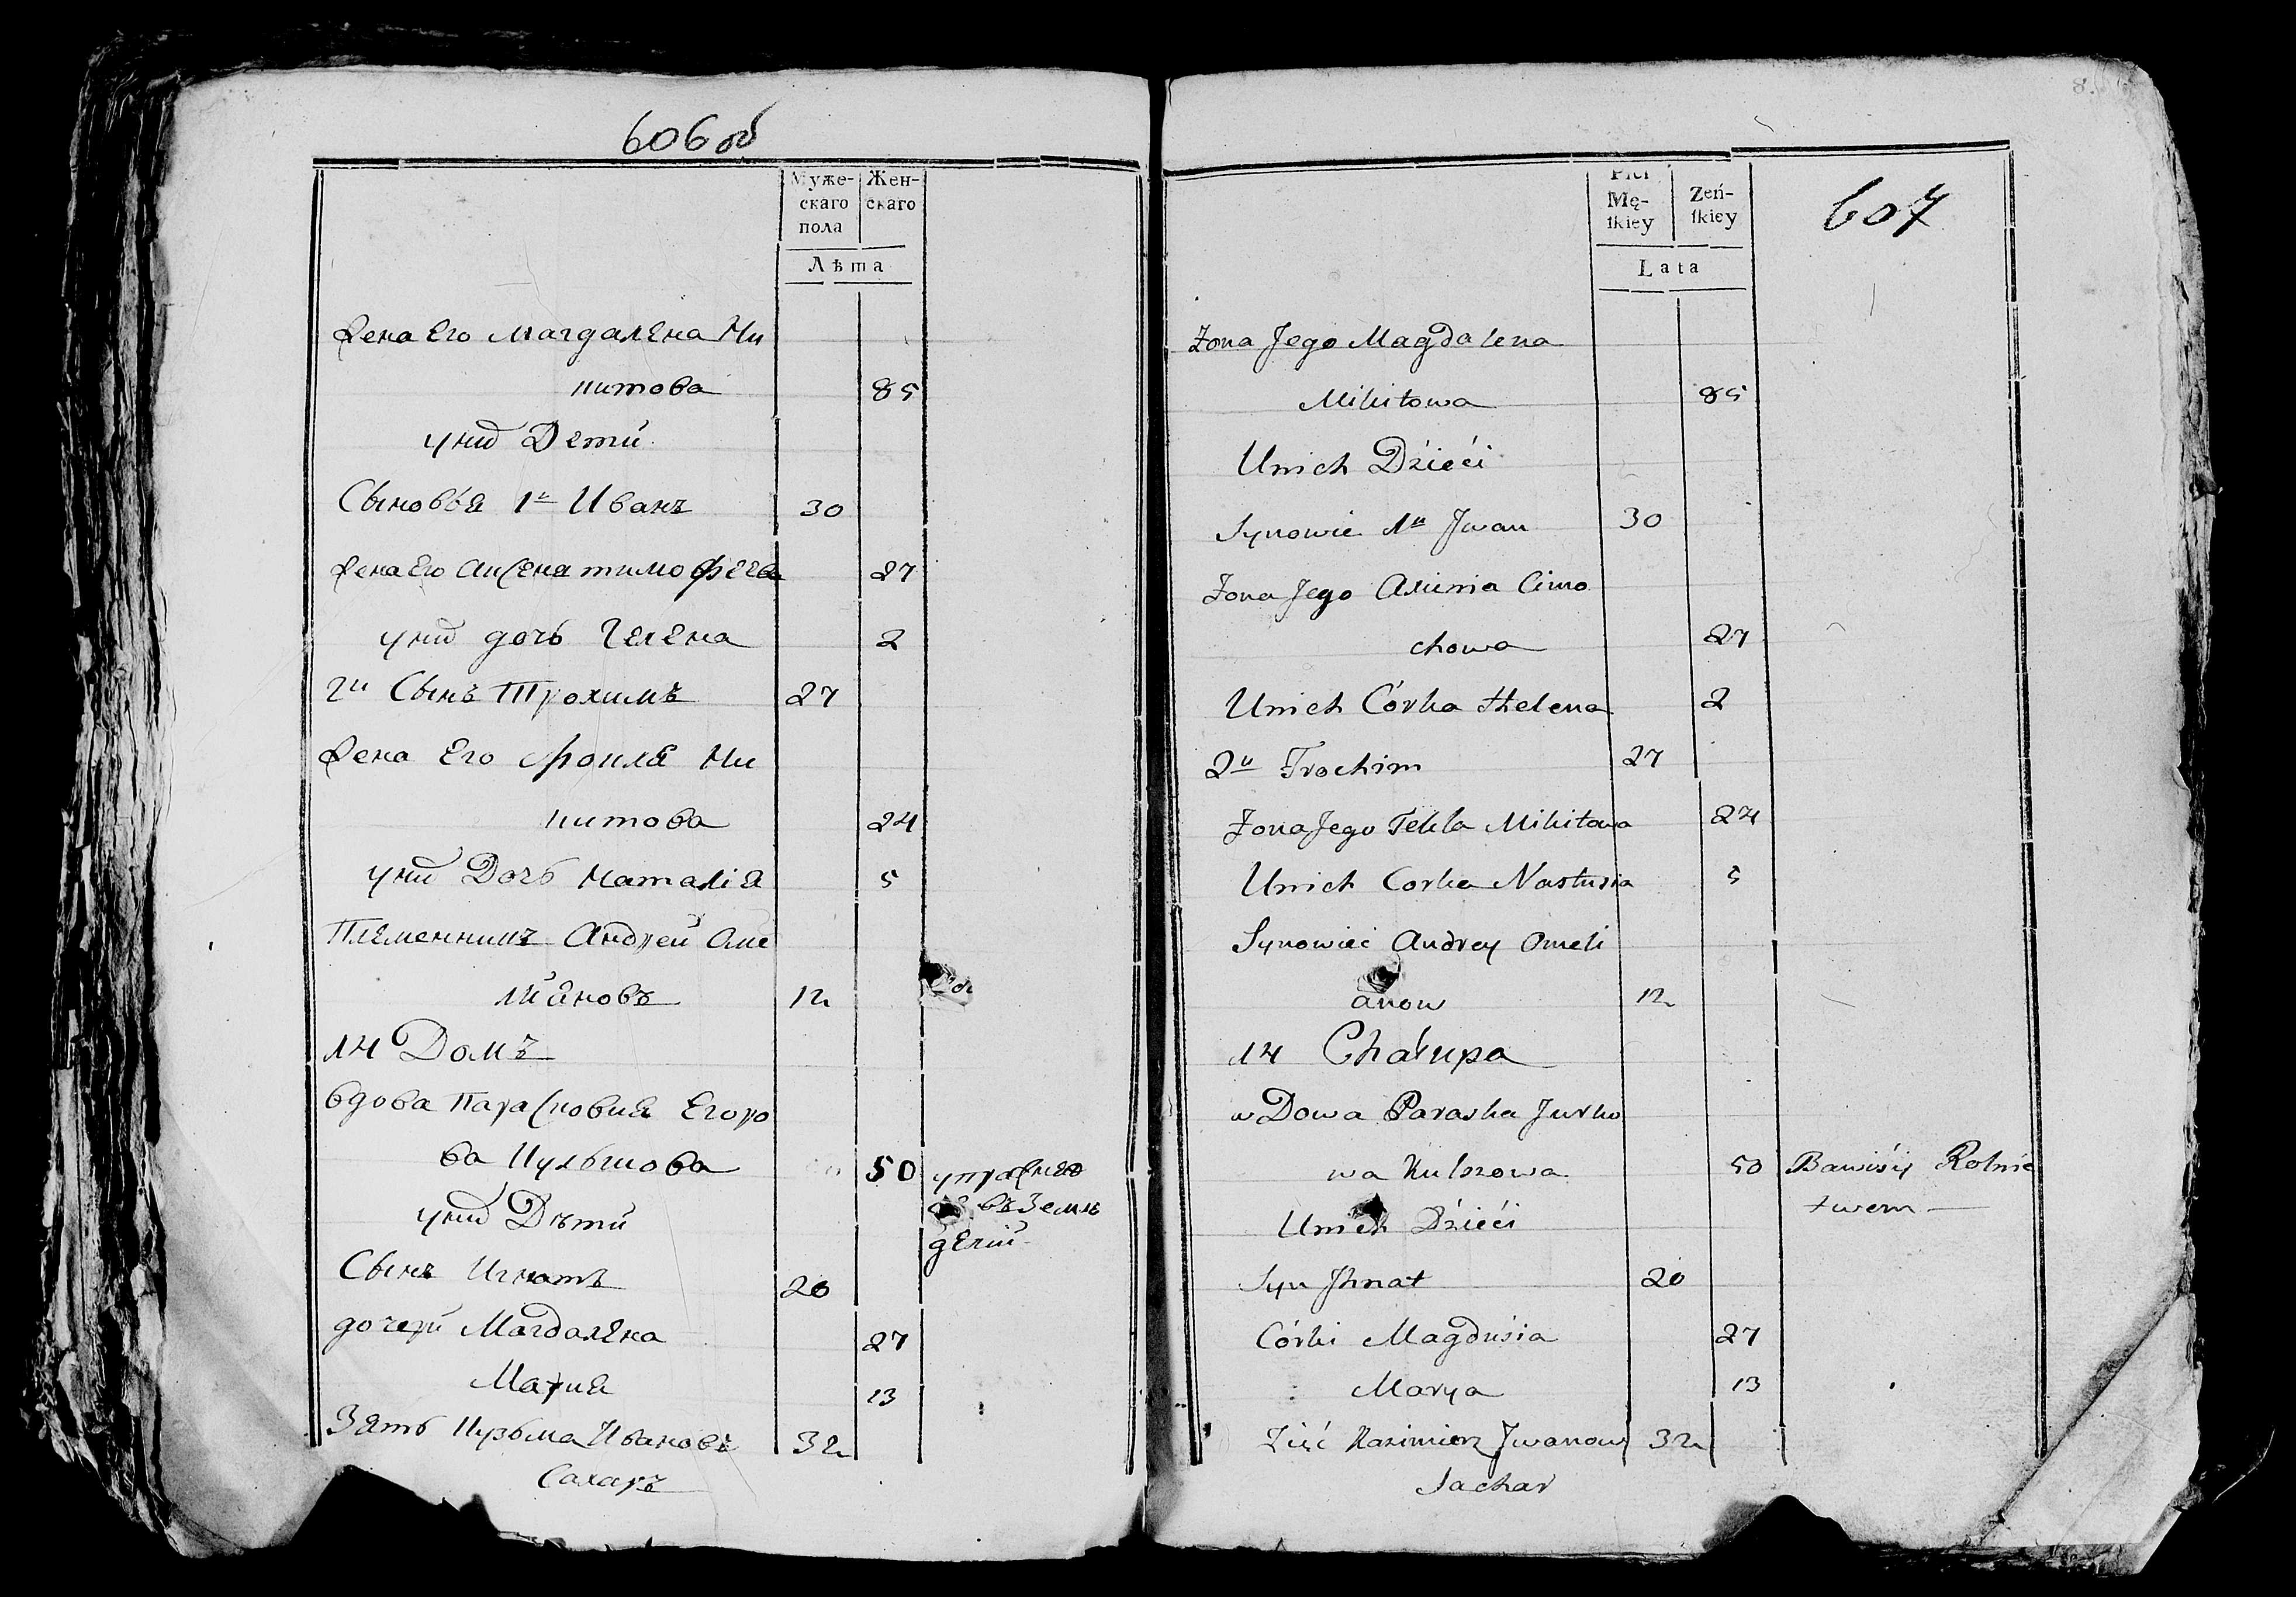 606 об
Муже-
скаго
пола
Жен-
скаго
Лѣта
Жена Его Магдалена Ми
китова 85
у нид Дети
Сыновья 1й Иванъ 30
Жена Его Аксеня тимофеева 27
у нид дочь Гелена 2
2й Сынъ Трохимъ 27
Жена Его Фокля Ми
китова 24
у нид Дочь Наталія 5
Племенникъ Андрей Оме
ліяновъ 12
14 Домъ
вдова Парасковия Егоро
ва Кульшова 50 упражняе
въ Земле
делій
у нид Дѣти
Сынъ Игнатъ 20
дочери Магдалена 27
Мария 13
Зять Кузьма Ивановъ 32
Сахаръ
8.
Płci
Mę-
ſkiey
Zeń-
ſkiey
607
Lata
Zona Jego Magdalena
Mikitowa 85
Unich Dzieći
Synowie 1u Jwan 30
Zona Jego Axienia Cimo
chowa 27
Unich Córka Helena 2
2u Trochim 27
Zona Jego Tekla Mikitowa 24
Unich Corka Nastusia 5
Synowiec Andrey Omeli
anow 12
14 Chałupa
wDowa Paraska Jurko
wa Kulszowa 50 Bawiśię Rolnic
twem
Unich Dzieći
Syn Jhnat 20
Córki Magdusia 27
Marya 13
Zięć Kazimierz Jwanow 32
Sachar